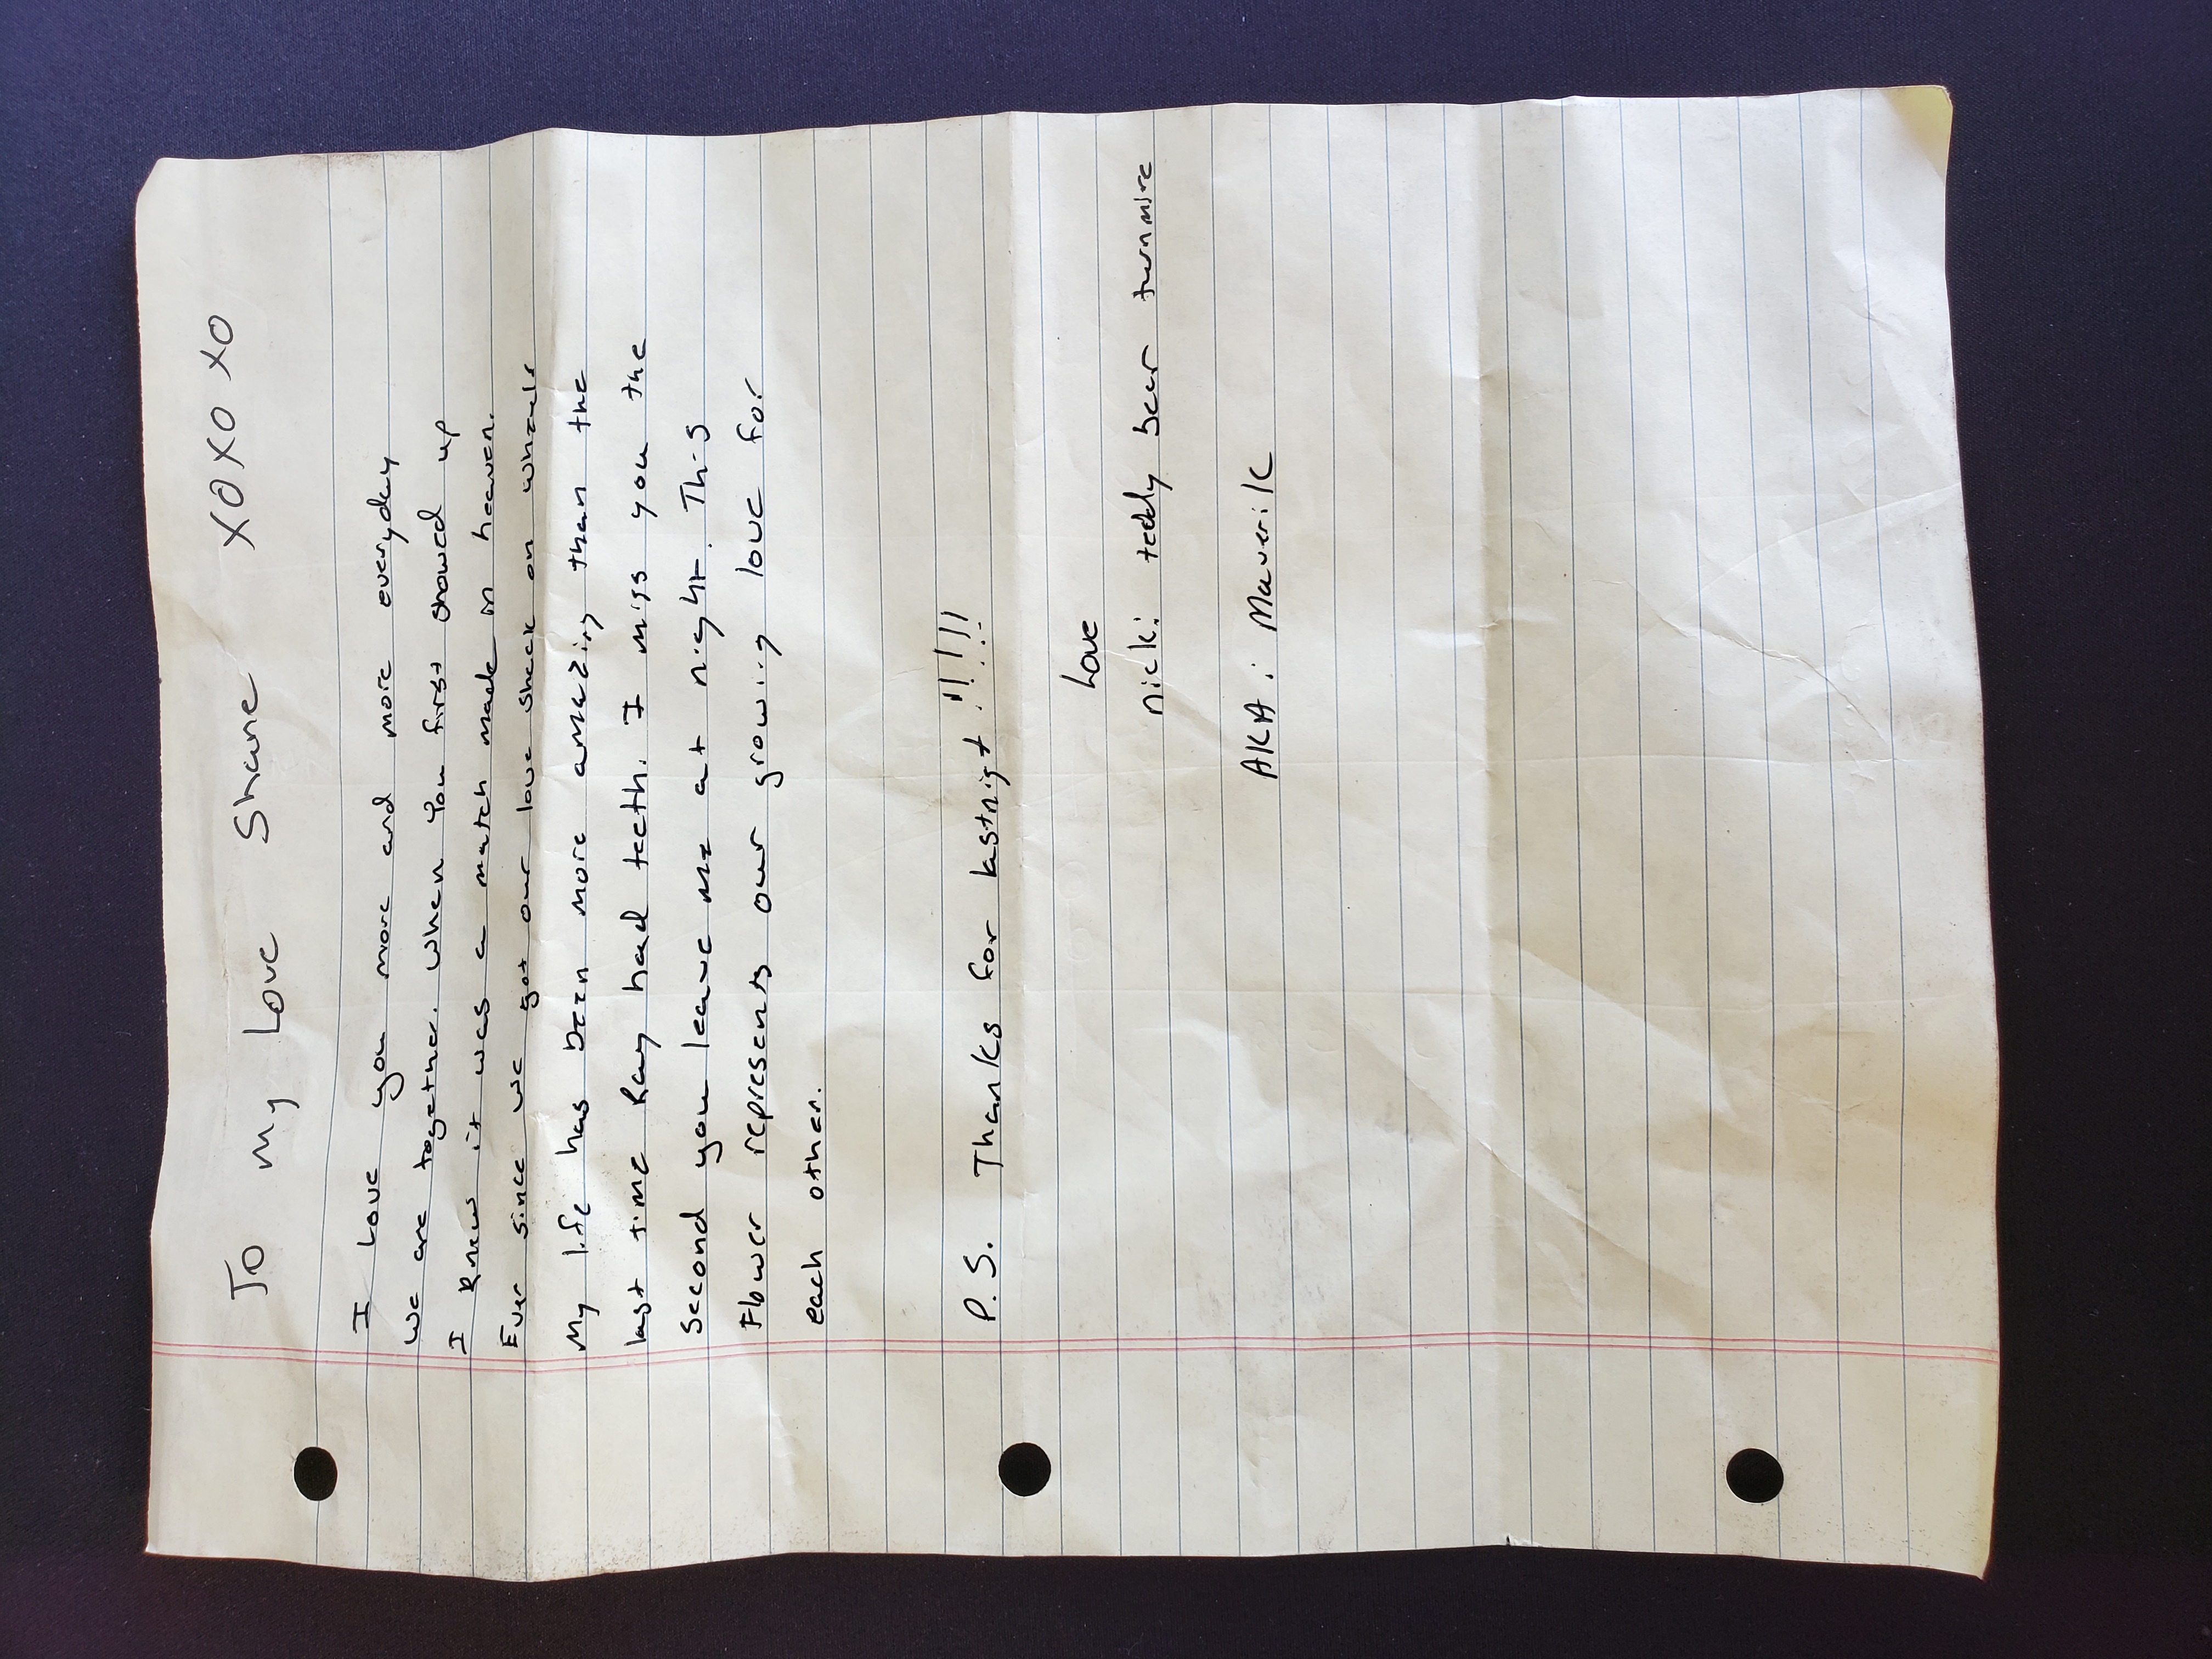 To my Love Shane XOXOXO
I Love you more and more everyday
we are together. when You first showed up
I knew it was a match made in heaven.
Ever since we got our love shack on wheels
My life has been more amazing than the
last time Ray had teeth. I miss you the
Second you leave me at night. This
Flower represents our growing love for
each other.
P.S. Thanks for lastnigt !!!!!
Love
nick: teddy bear turnmire
AKA: Maverik